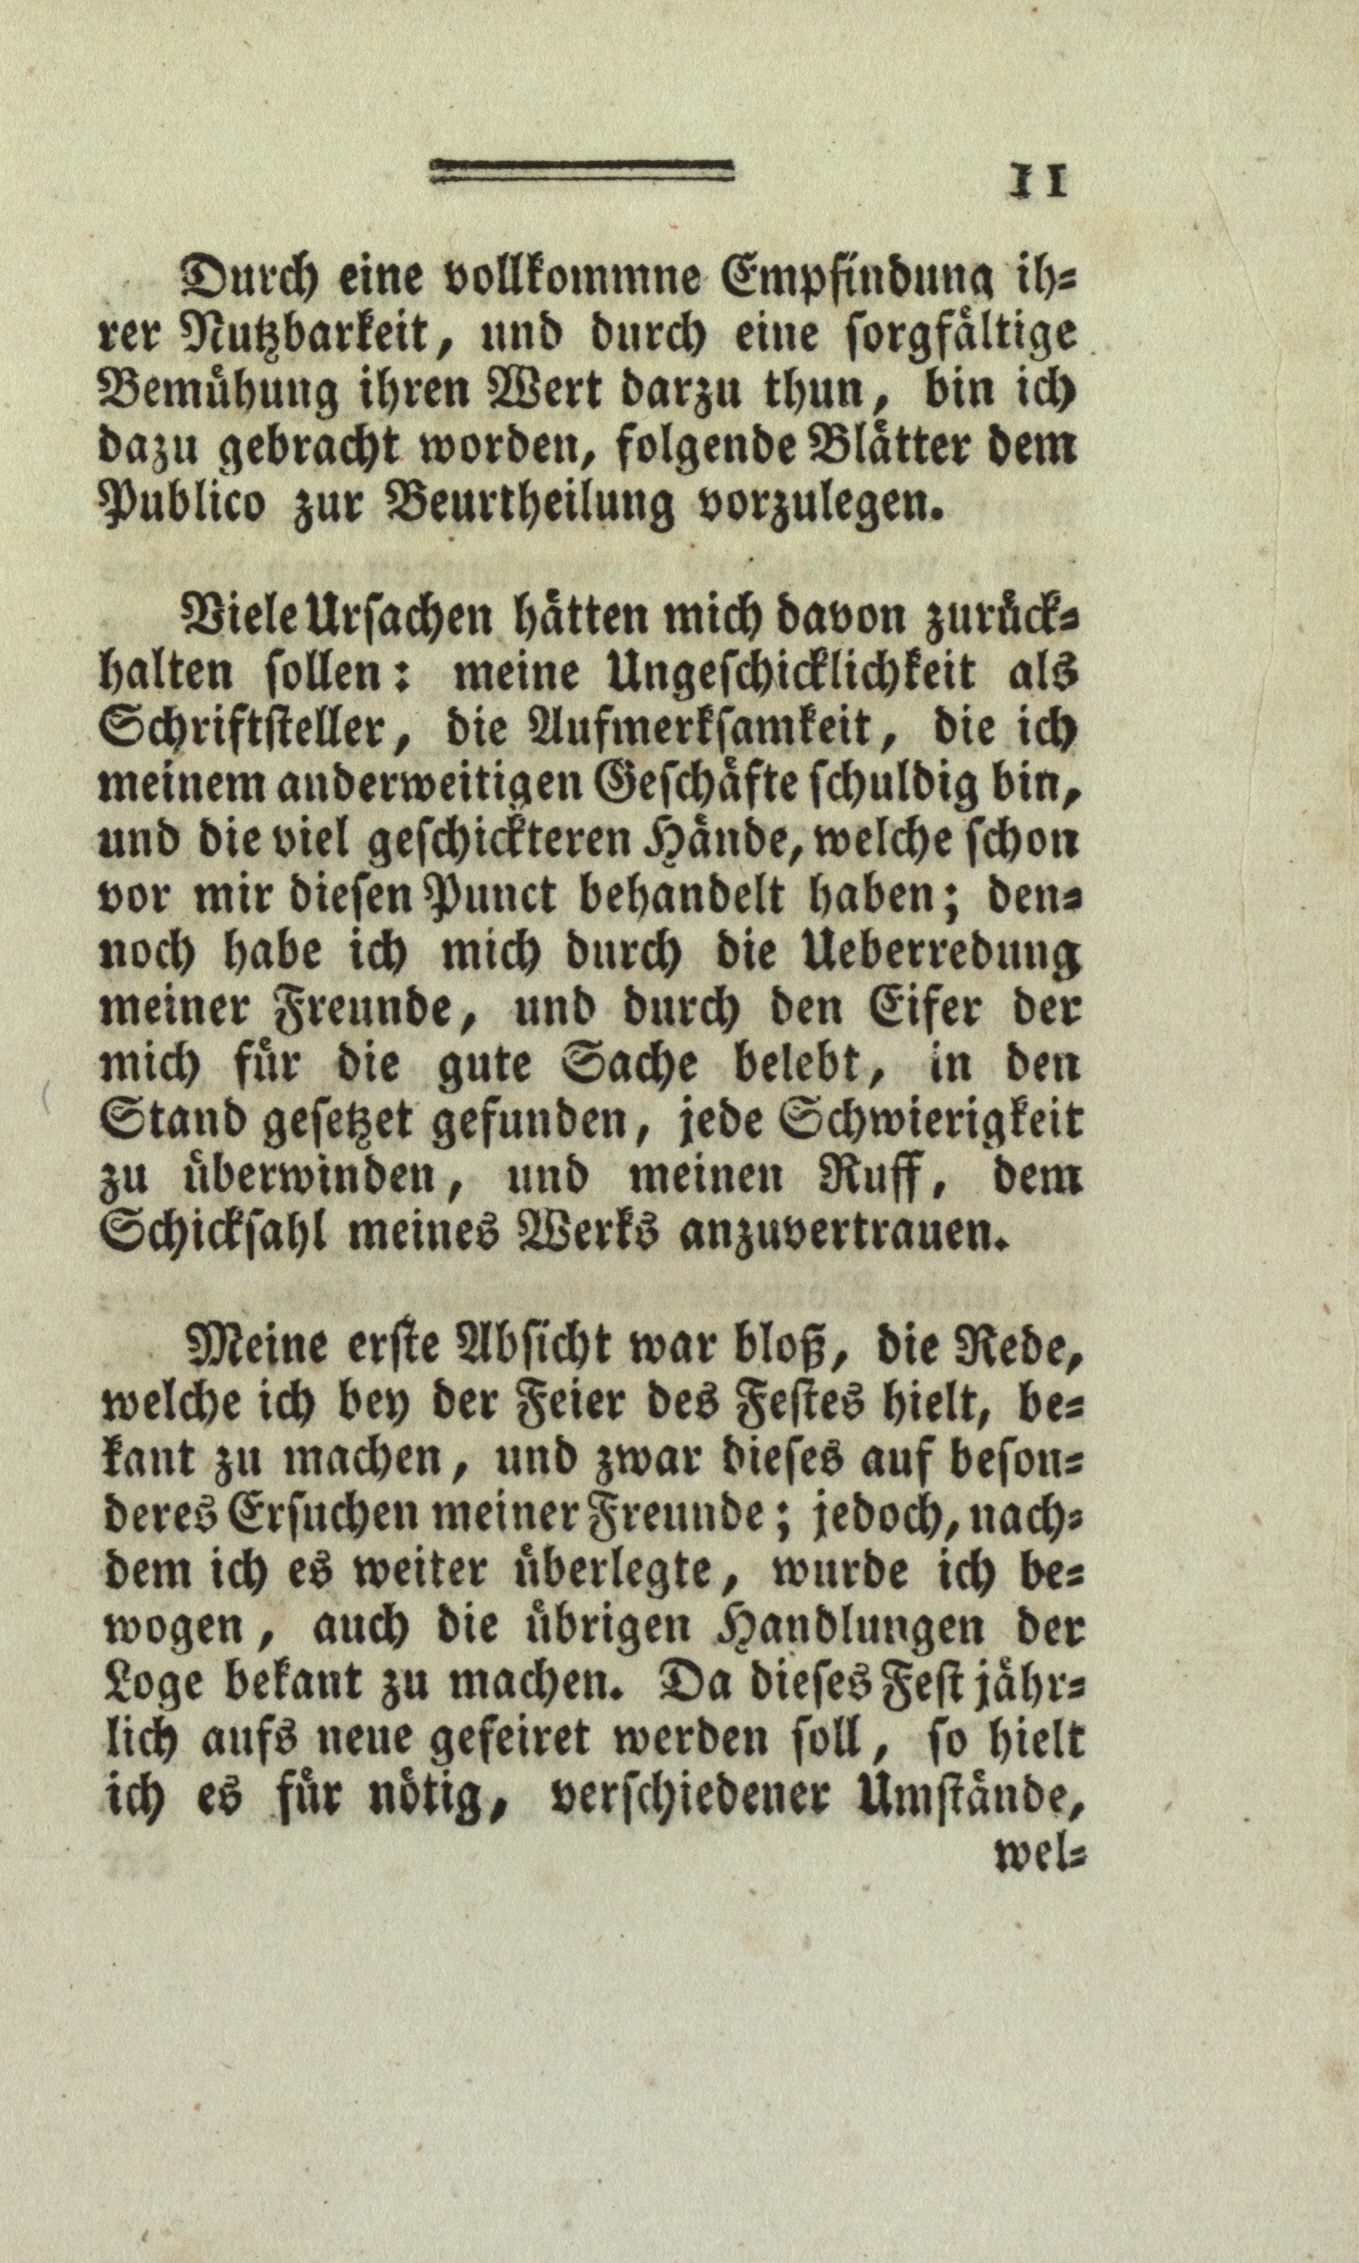 11
Durch eine vollkommne Empfindung ih-
rer Nutzbarkeit, und durch eine sorgfältige
Bemühung ihren Wert darzu thun, bin ich
dazu gebracht worden, folgende Blätter dem
Publico zur Beurtheilung vorzulegen.
Viele Ursachen hätten mich davon zurück-
halten sollen: meine Ungeschicklichkeit als
Schriftsteller, die Aufmerksamkeit, die ich
meinem anderweitigen Geschäfte schuldig bin,
und die viel geschickteren Hände, welche schon
vor mir diesen Punct behandelt haben; den-
noch habe ich mich durch die Ueberredung
meiner Freunde, und durch den Eifer der
mich für die gute Sache belebt, in den
Stand gesetzet gefunden, jede Schwierigkeit
zu überwinden, und meinen Ruff, dem
Schicksahl meines Werks anzuvertrauen.
Meine erste Absicht war bloß, die Rede,
welche ich bey der Feier des Festes hielt, be-
kant zu machen, und zwar dieses auf beson-
deres Ersuchen meiner Freunde; jedoch, nach-
dem ich es weiter überlegte, wurde ich be-
wogen, auch die übrigen Handlungen der
Loge bekant zu machen. Da dieses Fest jähr-
lich aufs neue gefeiret werden soll, so hielt
ich es für nötig, verschiedener Umstände,
wel-